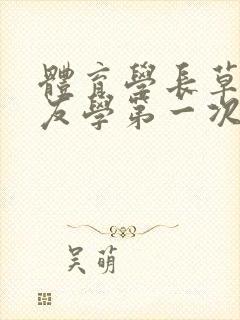 體育學長草
友學第一次
吴萌